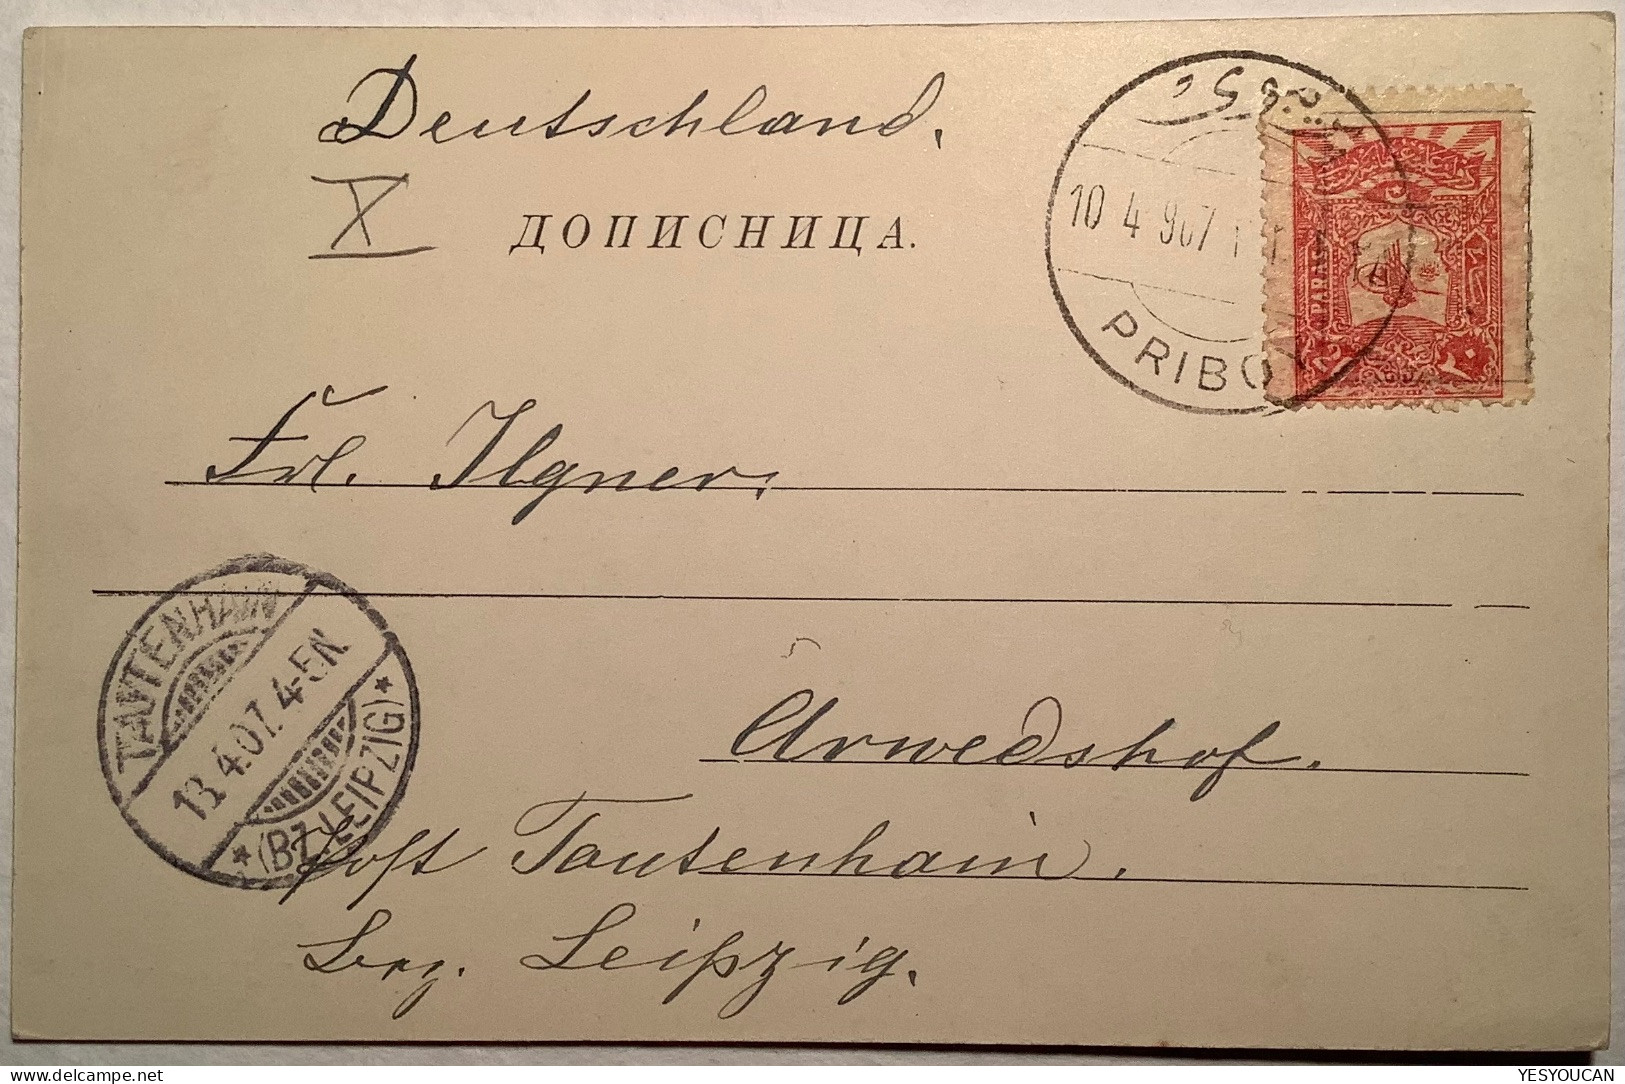 Deutschland.
X
ДОПИСНИЦА.
10 4 907
PRIBOI
20 PARAS
٢٠
Frl. Ilgner,
TAUTENHAIN
13.4.07. 4-5N.
* (BZ. LEIPZIG) *
Arwedshof.
Post Tautenhain.
Bez. Leipzig.
YESYOUCAN